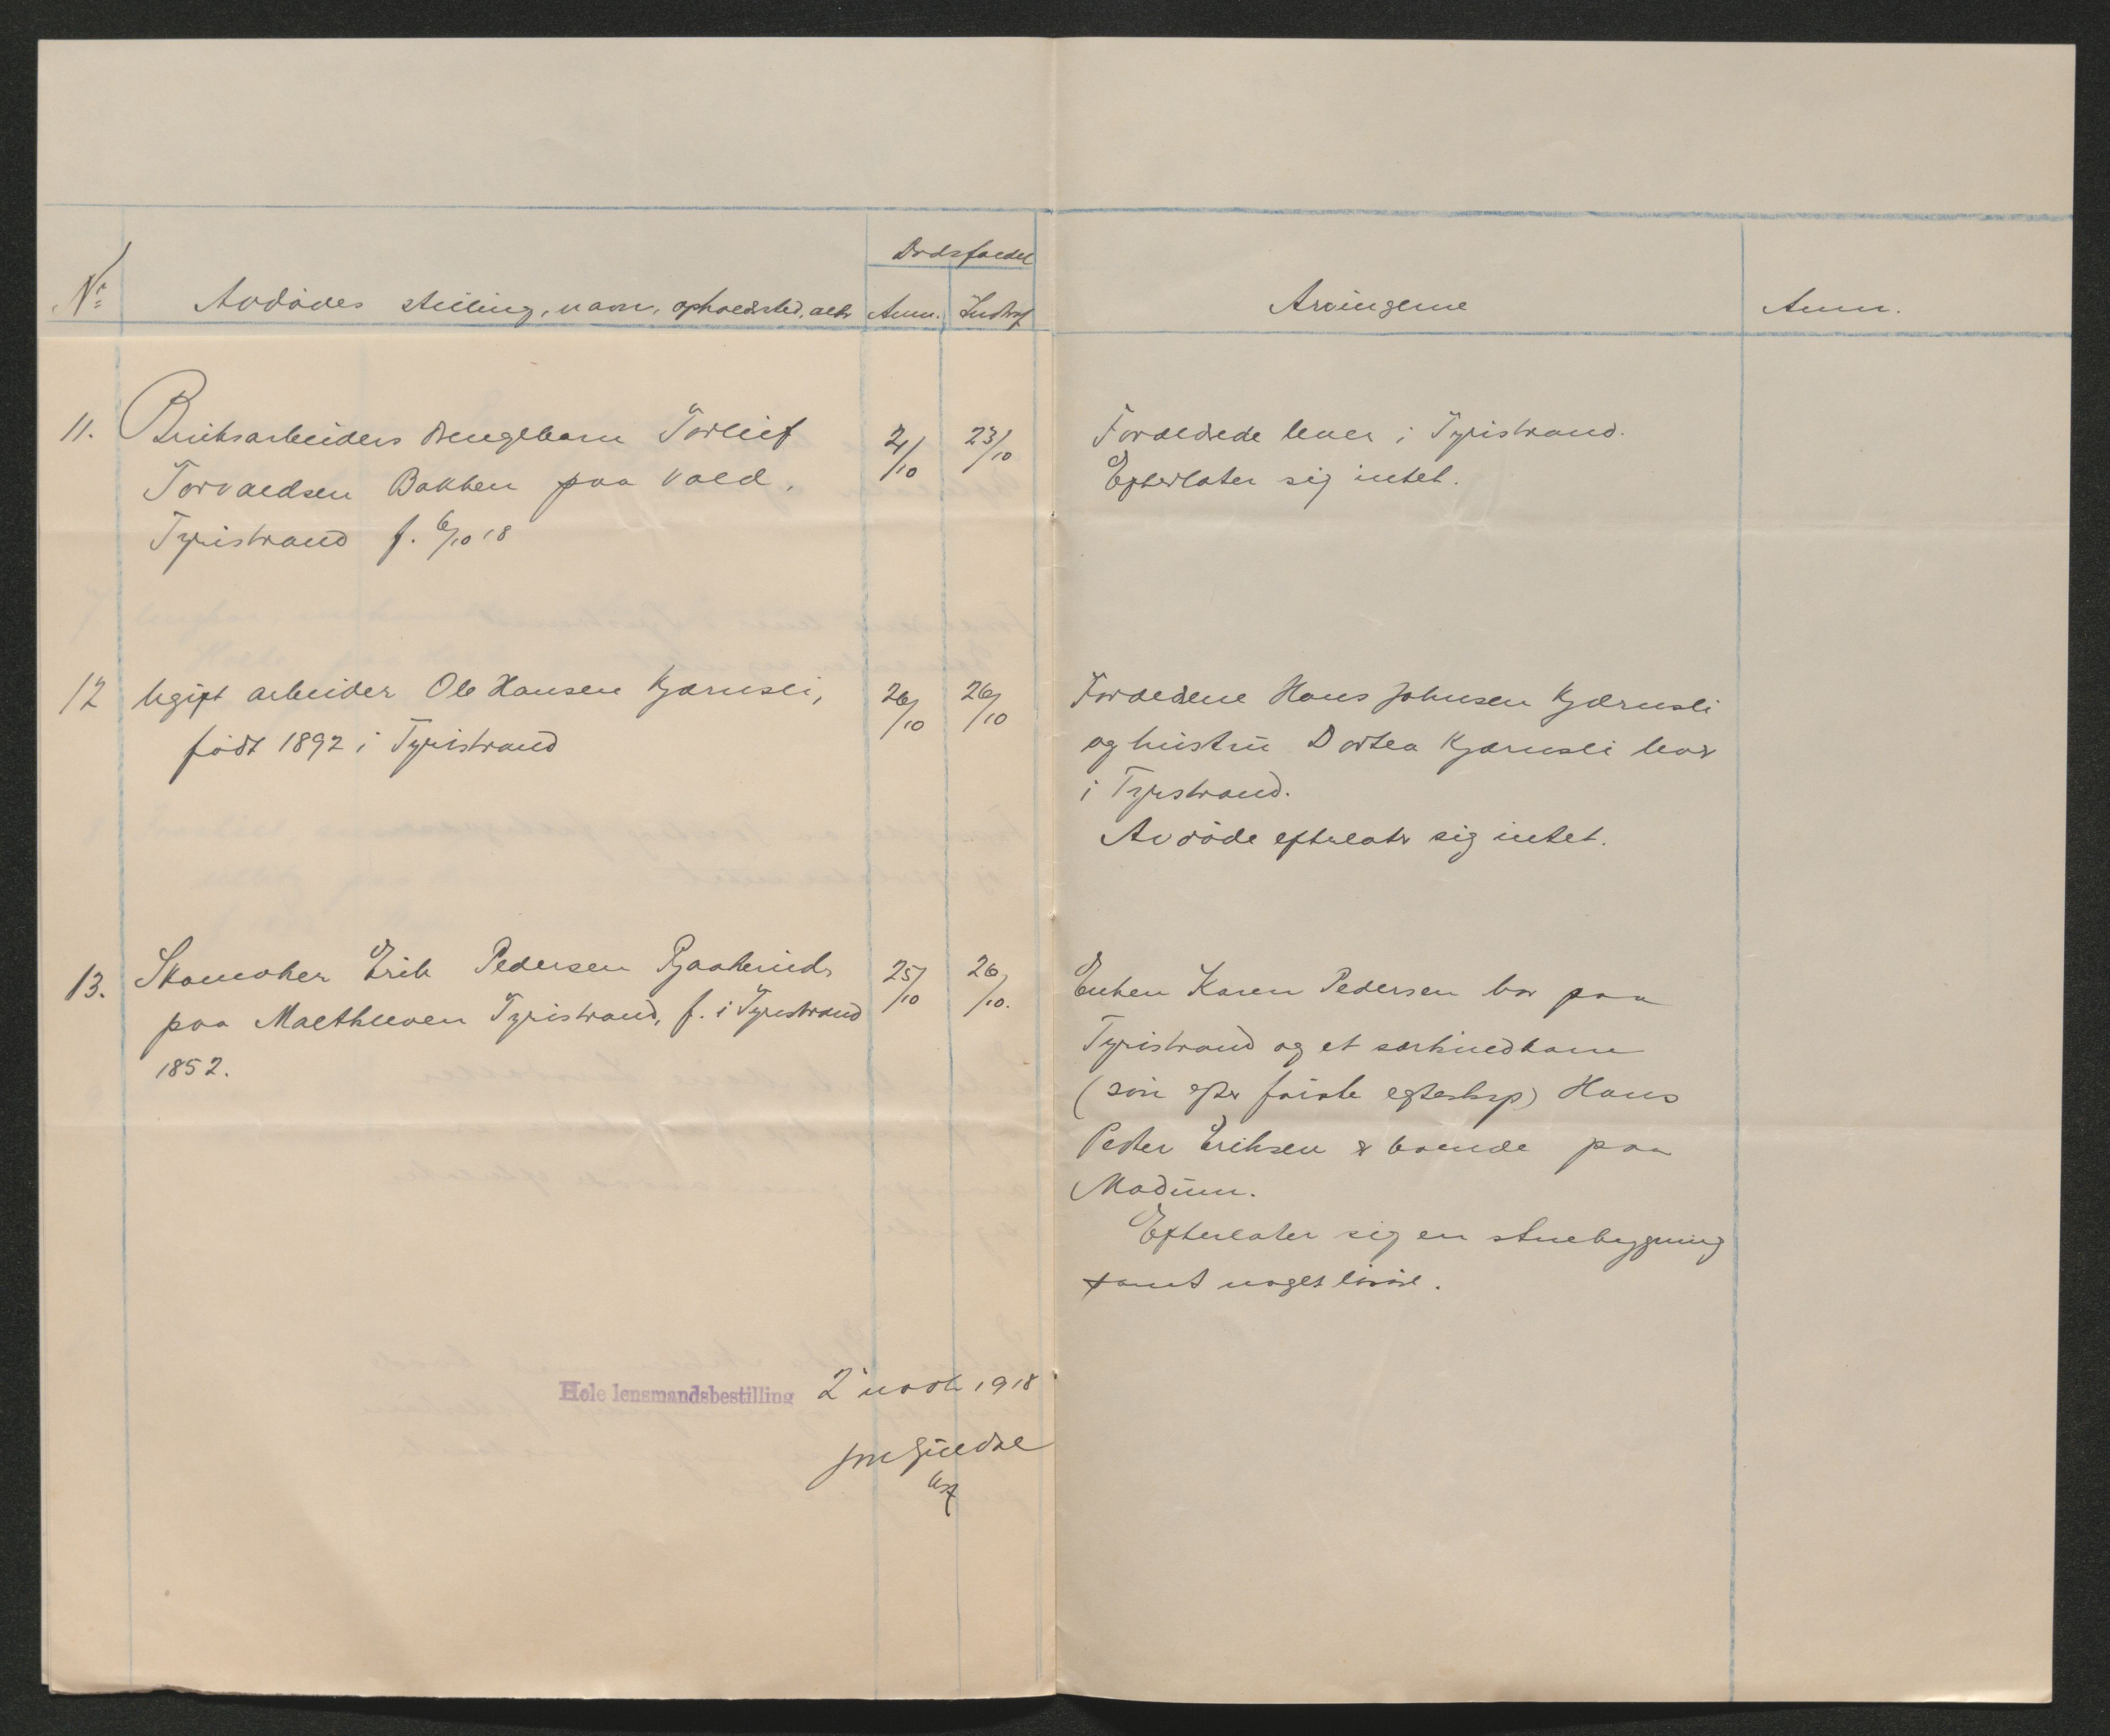 Dødsfaldet
No Avdødes stilling, navn, opholdssted, alder Anm. Indtraf Arvingerne Anm.
11. Bruksarbeiders drengebarn Torleif 21/10 23/10
Torvaldsen Bakken paa Vald,
Tyristrand f. 6/10 18
Forældrede lever i Tyristrand.
Efterlater sig intet.
12 Ugift arbeider Ole Hansen Kjærnsli, 26/10 26/10
født 1892 i Tyristrand
Forældrene Hans Johnsen Kjærnsli
og hustru Dortea Kjærnsli bor
i Tyristrand.
Avdøde efterlater sig intet.
13. Skomaker Erik Pedersen 25/10 26/10.
paa Tyristrand, f. i Tyristrand
1852.
Enken Karen Pedersen bor paa
Tyristrand og et særkuldbarn
(søn efter første egteskap) Hans
Peder Eriksen boende paa
Modum.
Efterlater sig en stuebygning
samt noget løsøre.
Hole lensmandsbestilling 2 novbr 1918